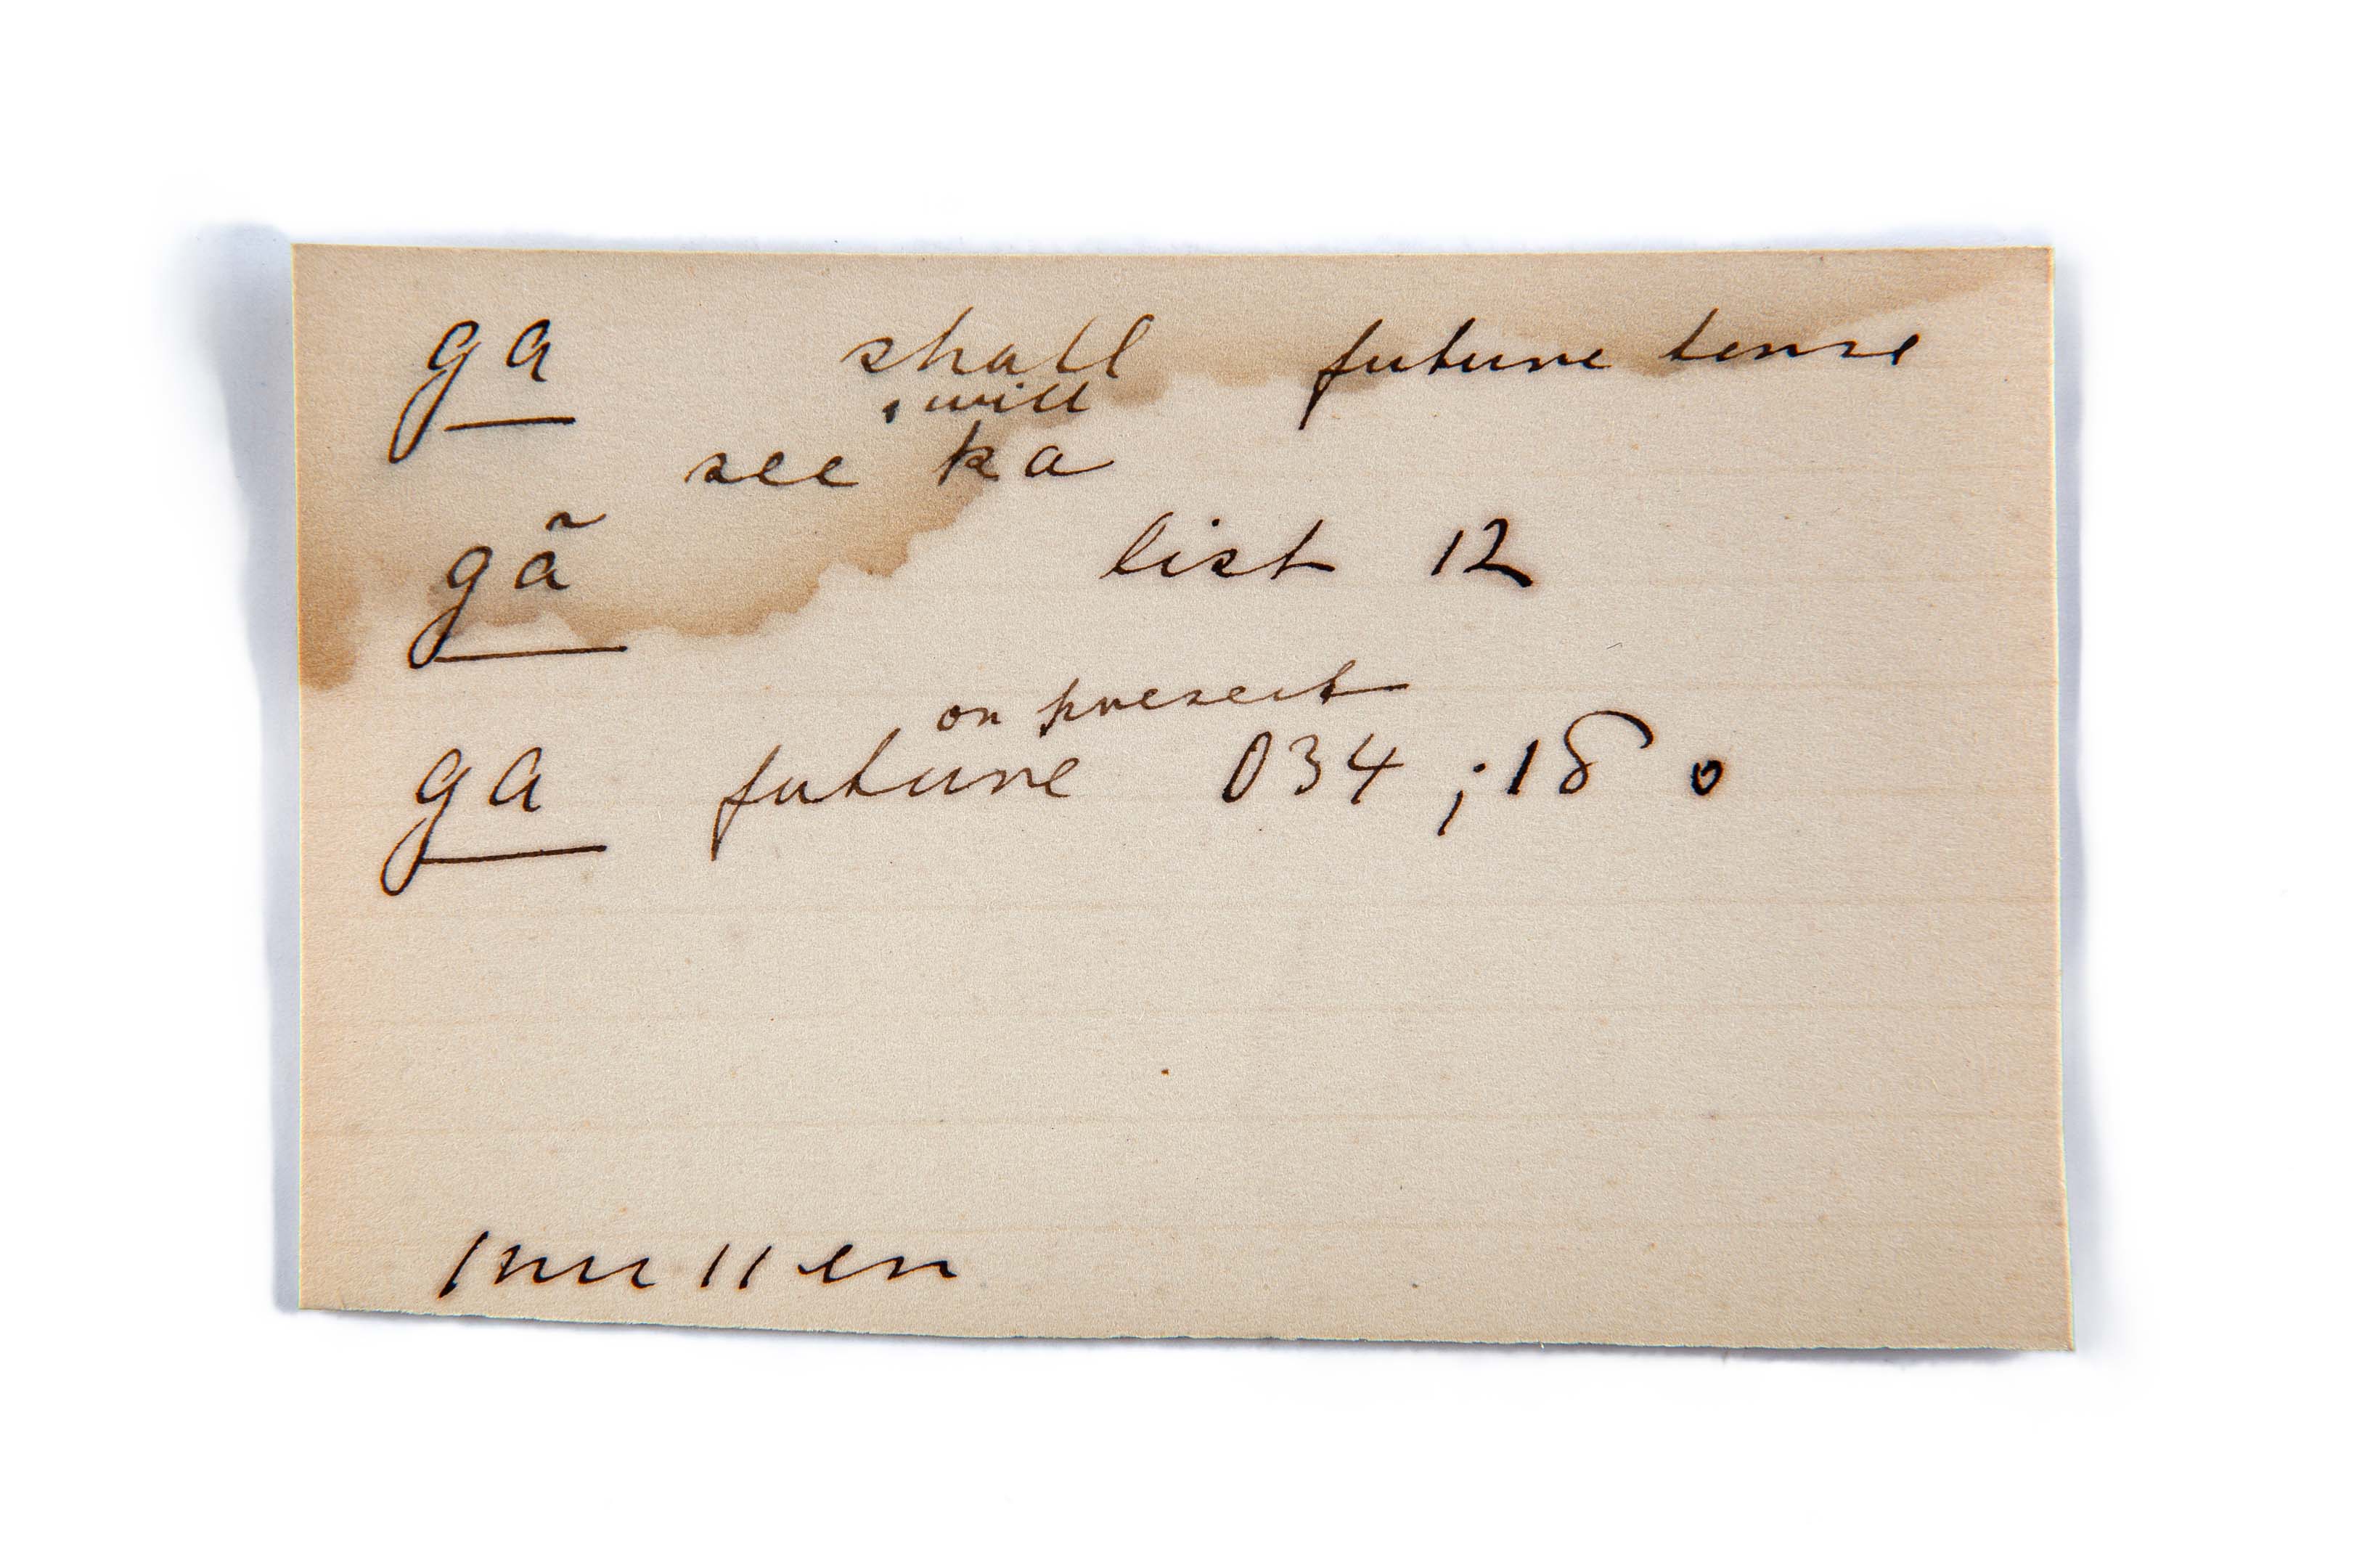 ga shall future tense
, will
see ka
gã list 12
or present
ga future 034 ; 18 o